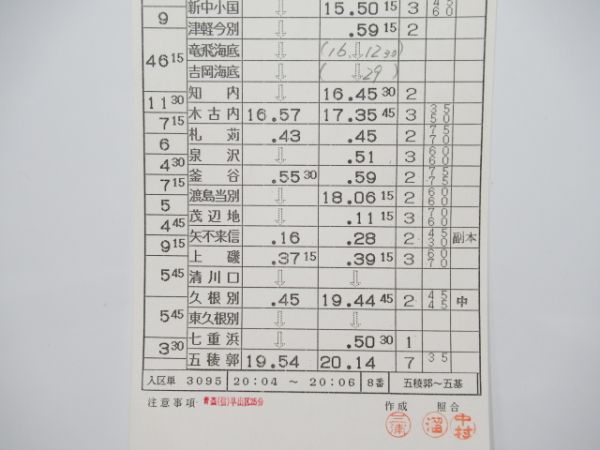 9 新中小国 ⇩ 15.50 15 3 45 60
津軽今別 ⇩ .59 15 2
46 15 竜飛海底 ⇩ (16 ⇩ 12 30)
吉岡海底 ⇩ ( ⇩ 29 )
知内 ⇩ 16.45 30 2
11 30 木古内 16.57 17.35 45 3 35 50
7 15 札苅 .43 .45 2 75 70
6 泉沢 ⇩ .51 3 60 60
4 30 釜谷 .55 30 .59 2 75 75
7 15 渡島当別 ⇩ 18.06 15 2 60 60
5 茂辺地 ⇩ .11 15 3 70 60
4 45 矢不来信 .16 .28 2 45 30 副本
9 15 上磯 .37 15 .39 15 3 60 70
清川口 ⇩ ⇩
5 45 久根別 .45 19.44 45 2 45 45 中
5 45 東久根別 ⇩ ⇩
七重浜 ⇩ .50 30 1
3 30 五稜郭 19.54 20.14 7 35
入区単 3095 20:04 ～ 20:06 8番 五稜郭～五基
注意事項 青森(信)早出区25分 作成 照合
三浦 溜 中村